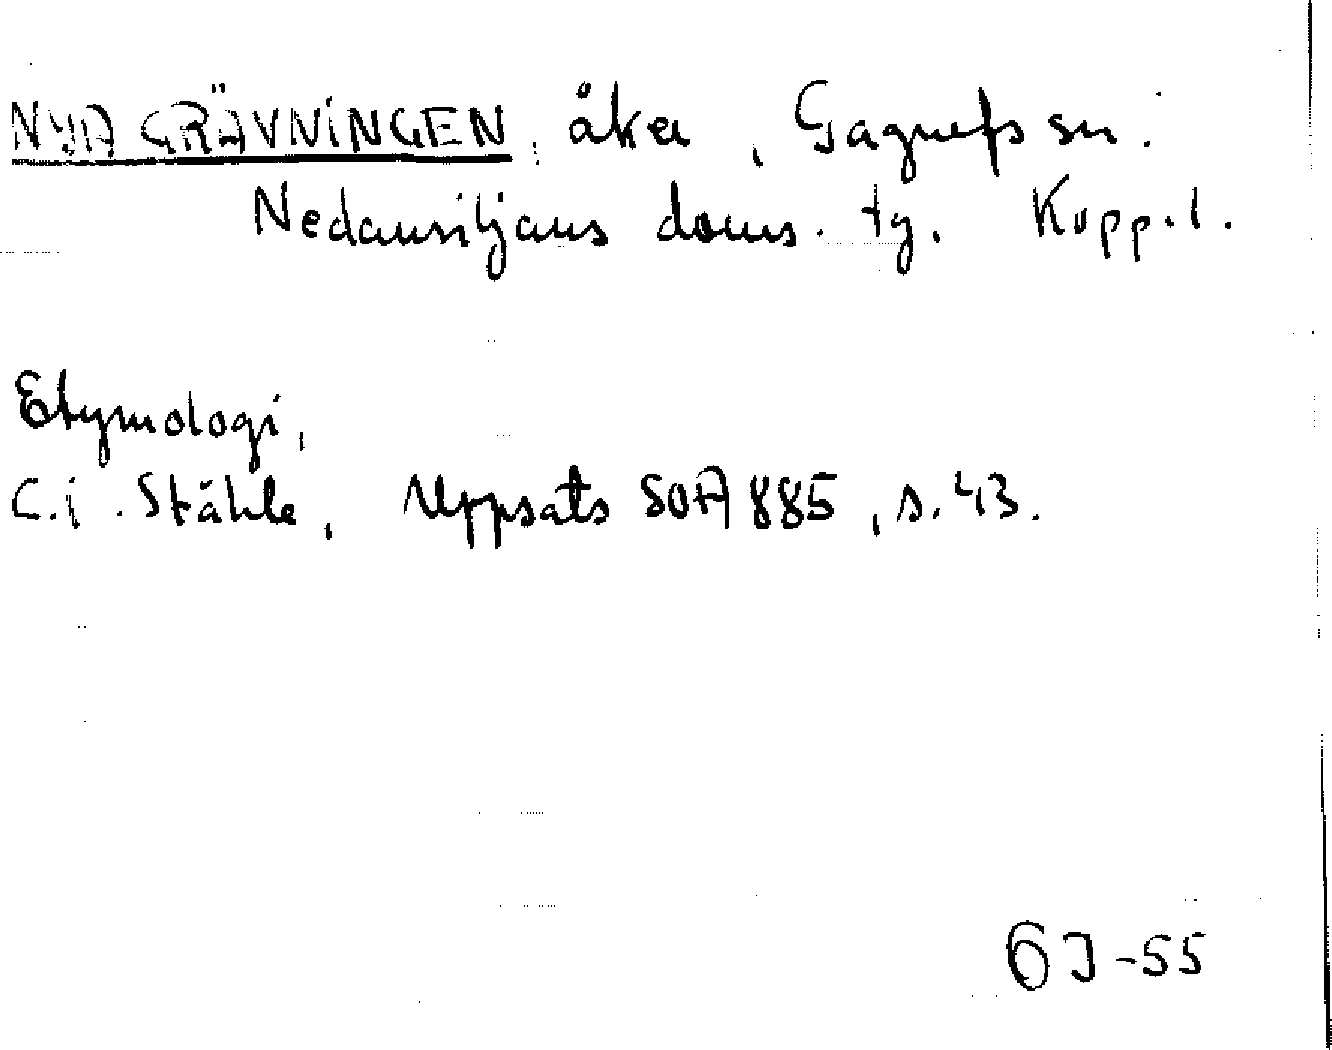 NYA GRÄVNINGEN, åker, Gagnefs sn.
Nedansiljans doms. tg. Kopp.l.
Etymologi,
C.i. Ståhle, Uppsats SOFA 885, s. 43.
GJ-55